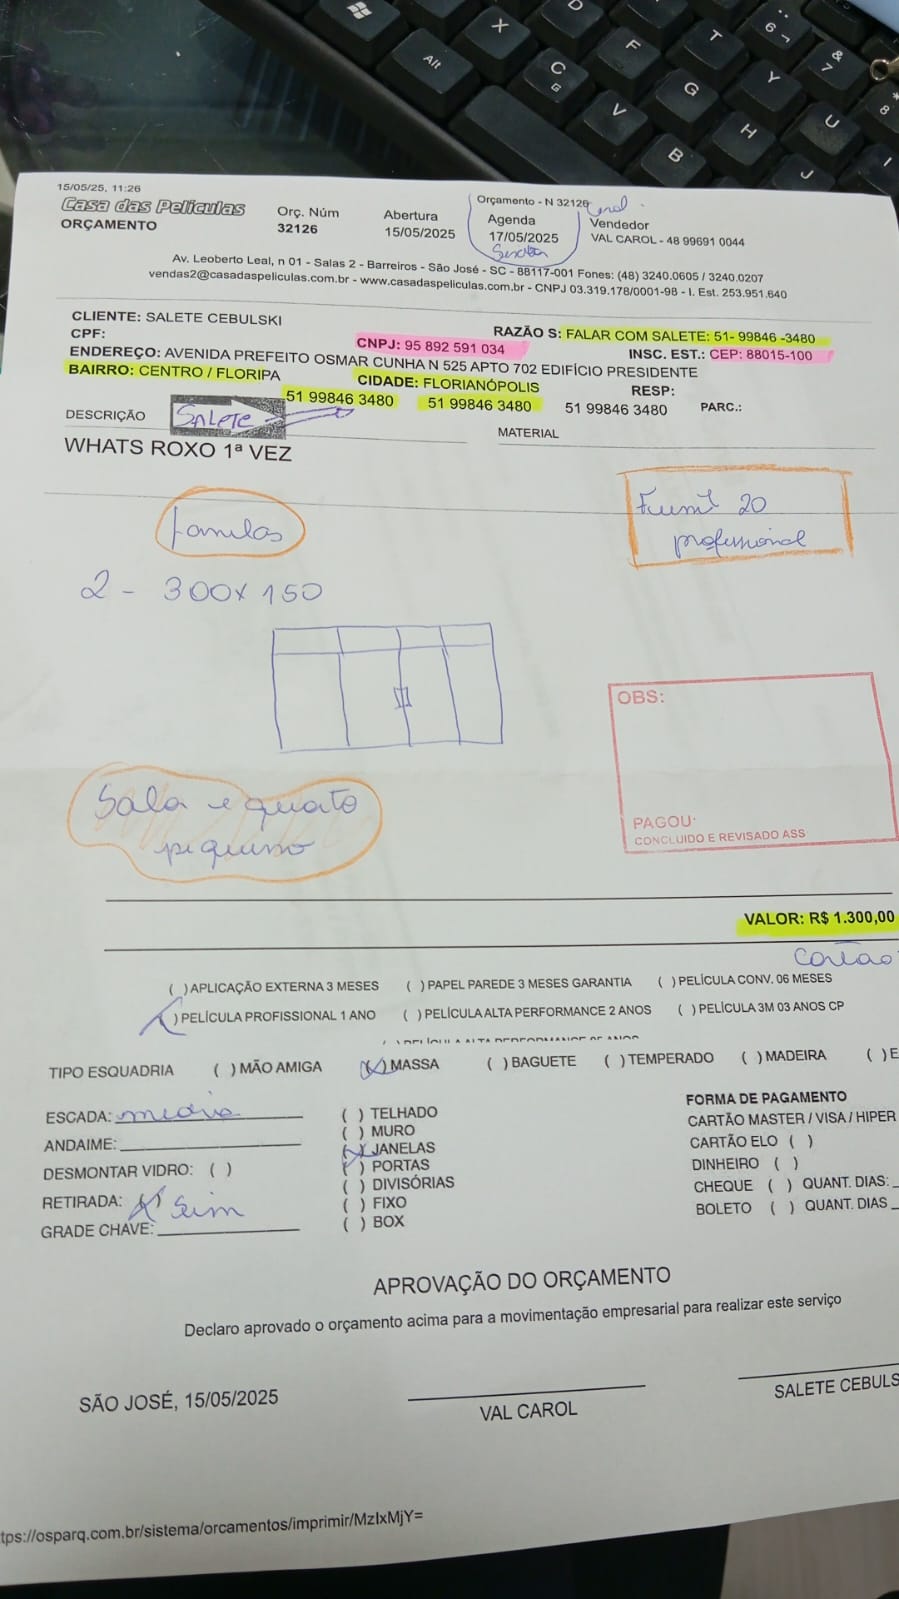 15/05/25, 11:26
Orçamento - N 32126
Casa das Películas
ORÇAMENTO
Orç. Núm
32126
Abertura
15/05/2025
Agenda
17/05/2025
Carol
Vendedor
VAL CAROL - 48 99691 0044
Av. Leoberto Leal, n 01 - Salas 2 - Barreiros - São José - SC - 88117-001 Fones: (48) 3240.0605 / 3240.0207
vendas2@casadaspeliculas.com.br - www.casadaspeliculas.com.br - CNPJ 03.319.178/0001-98 - I. Est. 253.951.640
CLIENTE: SALETE CEBULSKI
RAZÃO S: FALAR COM SALETE: 51- 99846 -3480
CPF:
CNPJ: 95 892 591 034
INSC. EST.: CEP: 88015-100
ENDEREÇO: AVENIDA PREFEITO OSMAR CUNHA N 525 APTO 702 EDIFÍCIO PRESIDENTE
BAIRRO: CENTRO / FLORIPA
CIDADE: FLORIANÓPOLIS
RESP:
51 99846 3480
51 99846 3480
51 99846 3480
PARC.:
DESCRIÇÃO
SALETE
MATERIAL
WHATS ROXO 1ª VEZ
Janelas
Fumê 20
profissional
2 - 300x150
OBS:
Sala e quarto
pequeno
PAGOU:
CONCLUIDO E REVISADO ASS
VALOR: R$ 1.300,00
Cartão
( )APLICAÇÃO EXTERNA 3 MESES ( )PAPEL PAREDE 3 MESES GARANTIA ( )PELÍCULA CONV. 06 MESES
( )PELÍCULA PROFISSIONAL 1 ANO ( )PELÍCULA ALTA PERFORMANCE 2 ANOS ( )PELÍCULA 3M 03 ANOS CP
TIPO ESQUADRIA ( )MÃO AMIGA (X)MASSA ( )BAGUETE ( )TEMPERADO ( )MADEIRA ( )E
ESCADA: média
ANDAIME:
DESMONTAR VIDRO: ( )
RETIRADA: (X) Sim
GRADE CHAVE:
( ) TELHADO
( ) MURO
(X)JANELAS
( ) PORTAS
( ) DIVISÓRIAS
( ) FIXO
( ) BOX
FORMA DE PAGAMENTO
CARTÃO MASTER / VISA / HIPER
CARTÃO ELO ( )
DINHEIRO ( )
CHEQUE ( ) QUANT. DIAS:
BOLETO ( ) QUANT. DIAS
APROVAÇÃO DO ORÇAMENTO
Declaro aprovado o orçamento acima para a movimentação empresarial para realizar este serviço
SÃO JOSÉ, 15/05/2025
VAL CAROL
SALETE CEBULS
tps://osparq.com.br/sistema/orcamentos/imprimir/MzIxMjY=